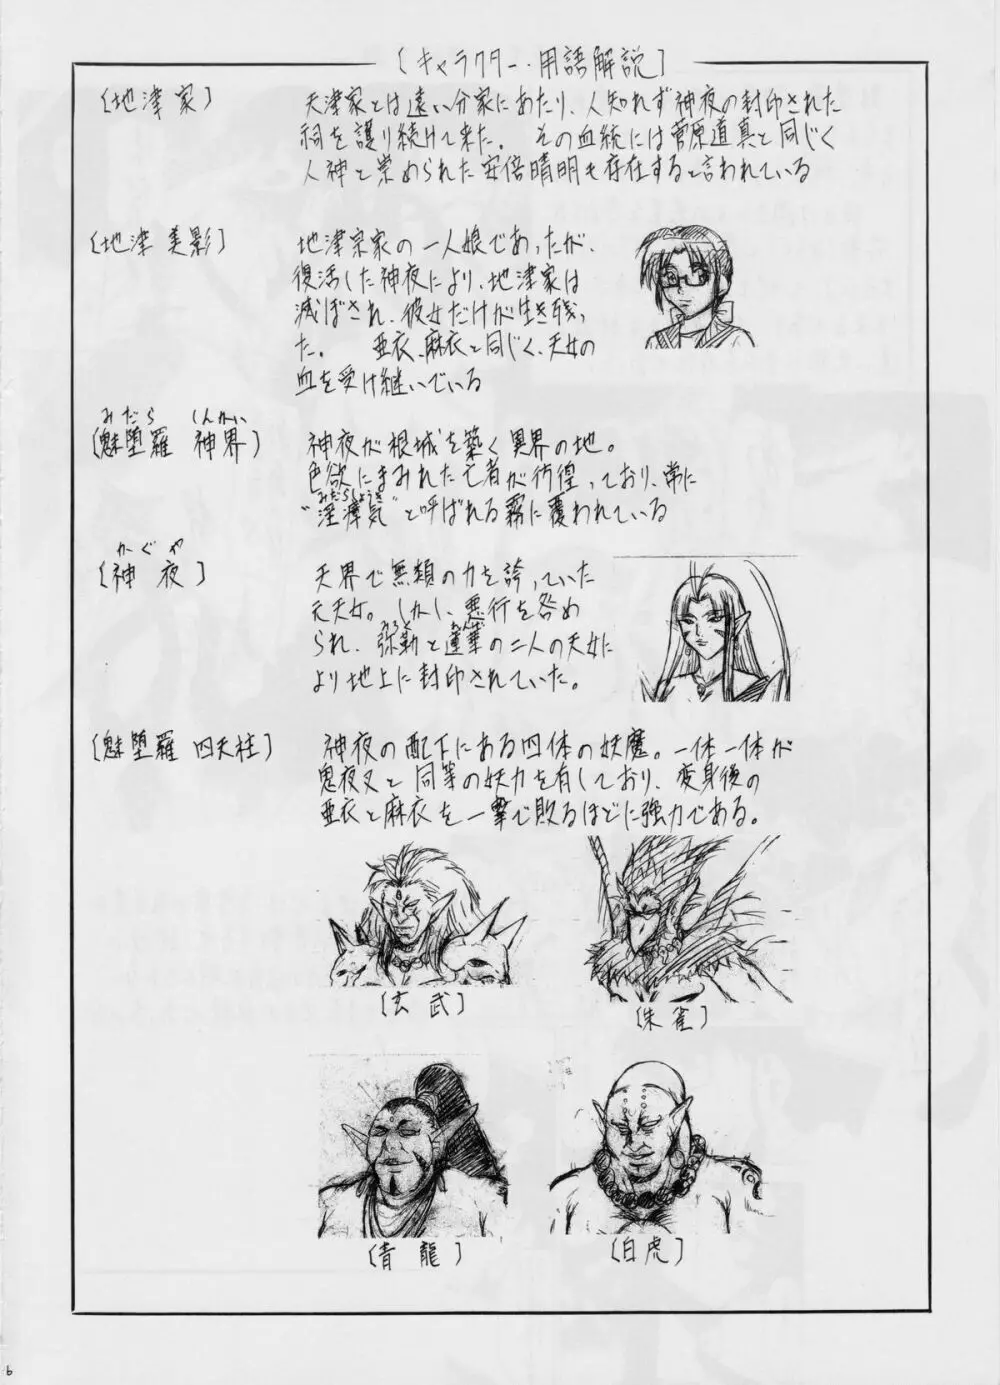 〔キャラクター・用語解説〕
〔地津家〕
天津家とは遠い分家にあたり、人知れず神夜の封印された
祠を護り続けて来た。 その血統には菅原道真と同じく
人神と崇められた安倍晴明も存在すると言われている
〔地津 美影〕
地津宗家の一人娘であったが、
復活した神夜により、地津家は
滅ぼされ、彼女だけが生き残っ
た。 亜衣、麻衣と同じく、天女の
血を受け継いでいる
みだら しんかい
〔魅堕羅 神界〕
神夜が根城を築く異界の地。
色欲にまみれた亡者が彷徨っており、常に
みだらしょうき
"淫瘴気"と呼ばれる霧に覆われている
かぐや
〔神夜〕
天界で無類の力を誇っていた
元天女。しかし、悪行を咎め
みろく れんげ
られ、弥勒と蓮華の二人の天女に
より地上に封印されていた。
〔魅堕羅 四天柱〕
神夜の配下にある四体の妖魔。一体一体が
鬼夜叉と同等の妖力を有しており、変身後の
亜衣と麻衣を一撃で敗るほどに強力である。
〔玄武〕
〔朱雀〕
〔青龍〕
〔白虎〕
6